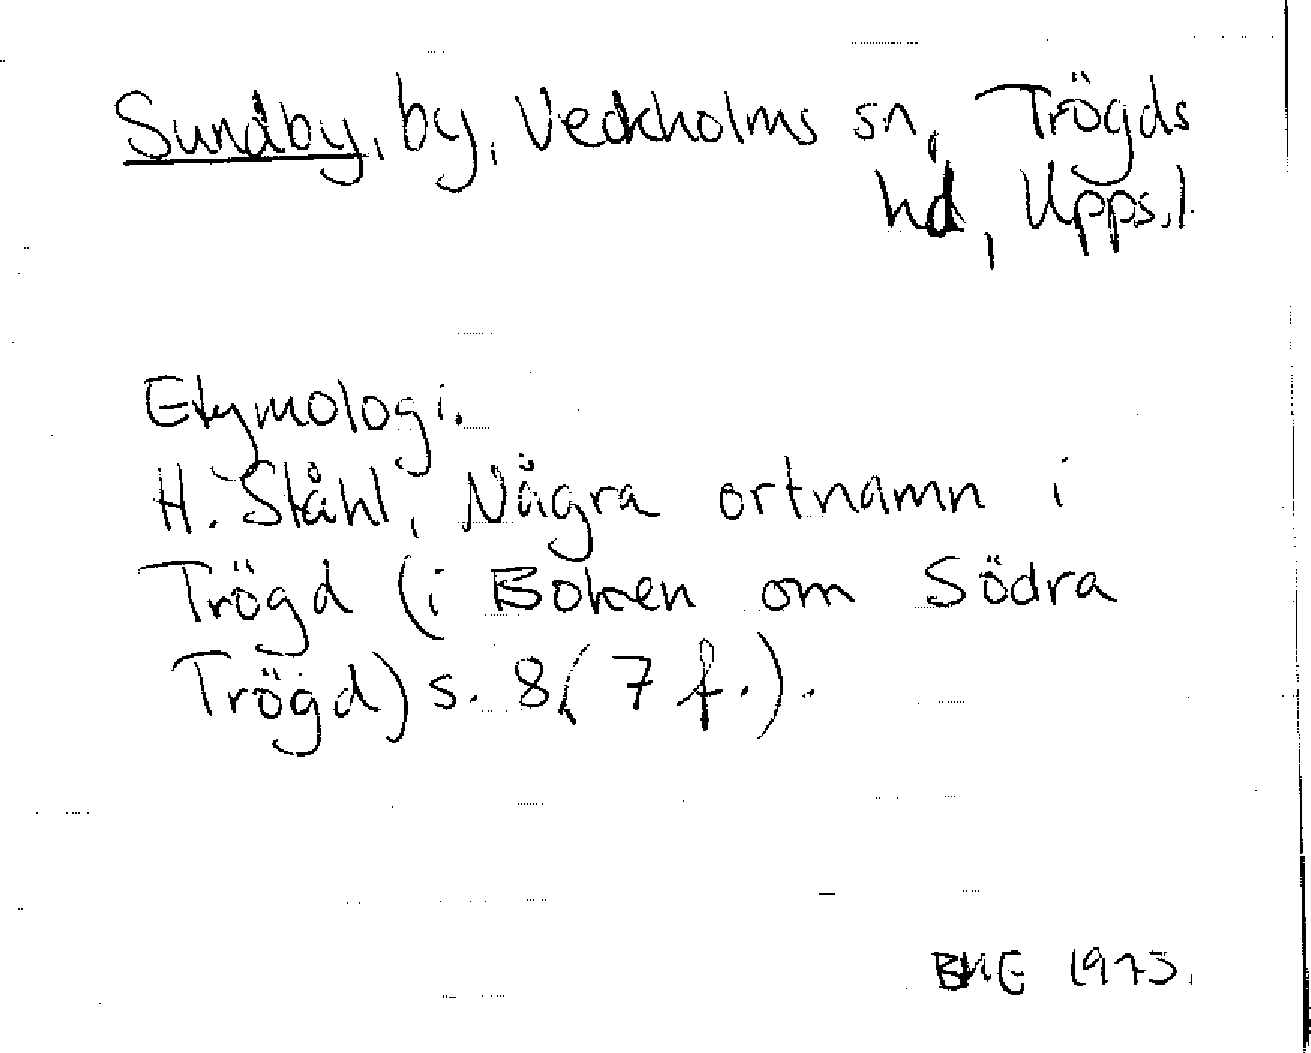 Sundby, by, Veckholms sn, Trögds
hd, Upps.l.
Etymologi.
H. Ståhl, Några ortnamn i
Trögd (i Boken om Södra
Trögd) s. 8, (7 f.).
1975.